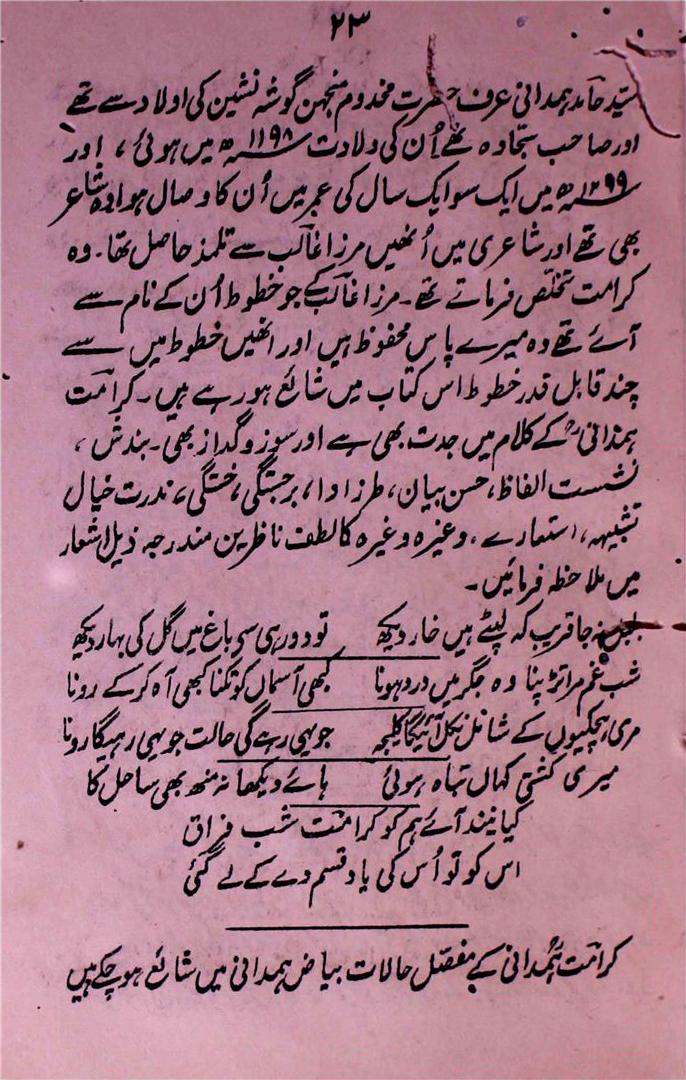 ۲۳
سید حامد ہمدانی عرف حضرت مخدوم منجہن گوشہ نشین کی اولاد سے تھے
اور صاحب سجادہ تھے اُن کی ولادت ۱۱۹۸ھ میں ہوئی، اور
۱۲۹۹ھ میں ایک سو ایک سال کی عمر میں اُن کا وصال ہوا وہ شاعر
بھی تھے اور شاعری میں اُنھیں مرزا غالب سے تلمذ حاصل تھا۔ وہ
کرامت تخلص فرماتے تھے۔ مرزا غالب کے جو خطوط اُن کے نام سے
آئے تھے وہ میرے پاس محفوظ ہیں اور انھیں خطوط میں سے
چند قابل قدر خطوط اس کتاب میں شائع ہو رہے ہیں۔ کرامت
ہمدانیؒ کے کلام میں جدت بھی ہے اور سوز و گداز بھی۔ بندش،
نشست الفاظ، حسن بیان، طرز ادا، برجستگی، ختگی، ندرت خیال
تشبیہہ، استعارے، وغیرہ وغیرہ کا لطف ناظرین مندرجہ ذیل اشعار
میں ملاحظہ فرمائیں۔
بلبل نہ جا قریب کہ لپٹے ہیں خار دیکھ تو دور ہی سے باغ میں گل کی بہار دیکھ
شب غم مرا تڑپنا وہ جگر میں درد ہونا کبھی آسماں کو تکنا کبھی آہ کر کے رونا
مری ہچکیوں کے شانل نکل آئیگا کلیجہ جو یہی رہے گی حالت جو یہی رہیگا رونا
میری کشتی کہاں تباہ ہوئی ہائے دیکھا نہ منھ بھی ساحل کا
کیا نیند آئے ہم کو کرامت شب فراق
اس کو تو اُس کی یاد قسم دے کے لے گئی
کرامت ہمدانی کے مفصل حالات بیاض ہمدانی میں شائع ہو چکے ہیں